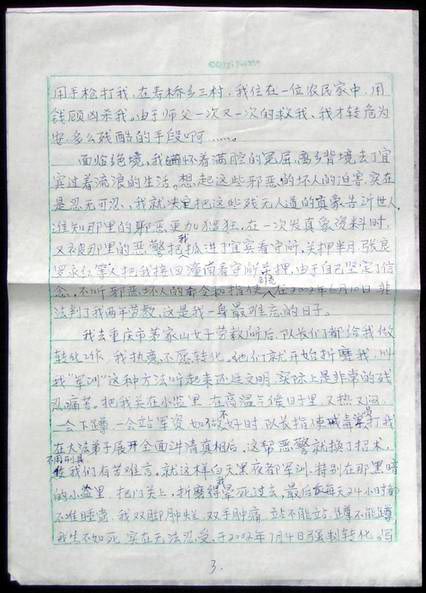 用手枪打我,在寿桥乡三村,我住在一位农民家中,用
钱顾凶杀我,由于师父一次又一次的救我,我才转危为
安,多么残酷的手段啊……。
面临绝境,我怀着满腔的冤屈,离乡背境去了宜
宾过着流浪的生活。想起这些邪恶的坏人的迫害,实在
是忍无可忍,我就决定把这些残无人道的真象告诉世人,
谁知那里的邪恶更加猖狂,在一次发真象资料时,
又被那里的恶警把我抓进了宜宾看守所,关押半月张良
又把我接回潼南看守所关押,由于自己坚定了信
念,不听邪恶坏人的命令和指使,在2002年6月10日非
法判了我两年劳教,这是我一身最难忘的日子。
我去重庆市茅家山女子劳教所后,队长们都给我做
转化工作,我执意不愿转化。他们就开始折磨我,叫
我"军训"这种方法听起来还还文明,实际上是非常的残
忍痛苦。把我关在小监里,在高温气候日子里,又热又闷,
一会下蹲,一会站军姿,如做不好时,队长指使吸毒犯打我
在大法弟子展开全面讲清真相后,这帮恶警就换了招术,
不用刑具
使我们有苦难言。就这样白天黑夜都军训,特别在那黑暗
的小监里,把门关上,折磨得我晕死过去,最后每天24小时都
不准睡觉,我双脚肿烂,双手肿痛,站不能站,蹲不能蹲
我生不如死,实在无法忍受,于2002年7月4日强制转化。写
3.